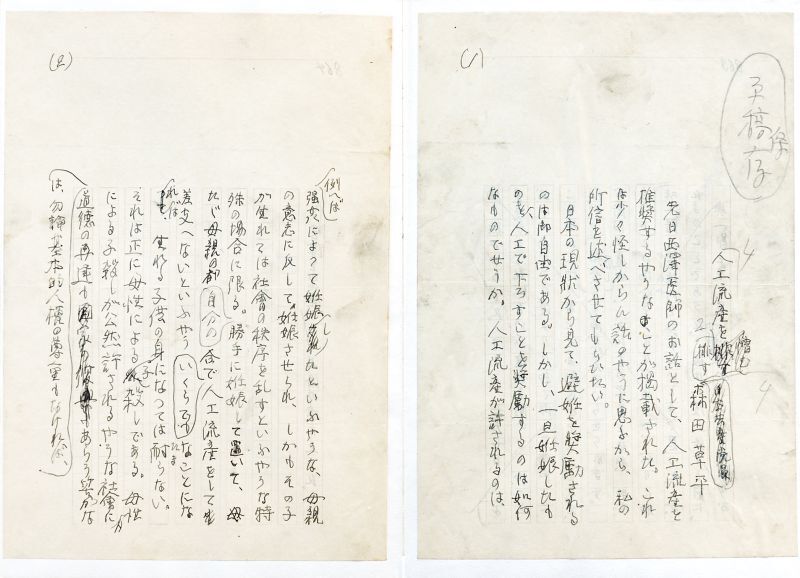 (1)
草稿
保存
人工流産を排す
森田草平
先日西澤医師のお話として、人工流産を
推奨するやうなことが掲載された。これ
は少々怪しからん話のやうに思ふから、私の
所信を述べさせてもらひたい。
日本の現状から見て、避妊を奨励される
のは御自由である。しかし、一旦妊娠したも
のを、人工で下ろすことを奨励するのは如何
なものでせうか。人工流産が許されるのは、
(2)
例へば
強姦によつて妊娠したといふやうな、母親
の意志に反して妊娠させられ、しかもその子
が生れては社會の秩序を乱すといふやうな特
殊の場合に限る。勝手に妊娠して置いて、母
たゞ母親の自分の都合で人工流産をしても
差支へないといふやうなことにな
れば
生れる子供の身になつては耐らない。
それは正に母性による子殺しである。母性
による子殺しが公然許されるやうな社會に
道徳の再建も あらう筈がな
は、勿論基本的人権の尊重もなければ、